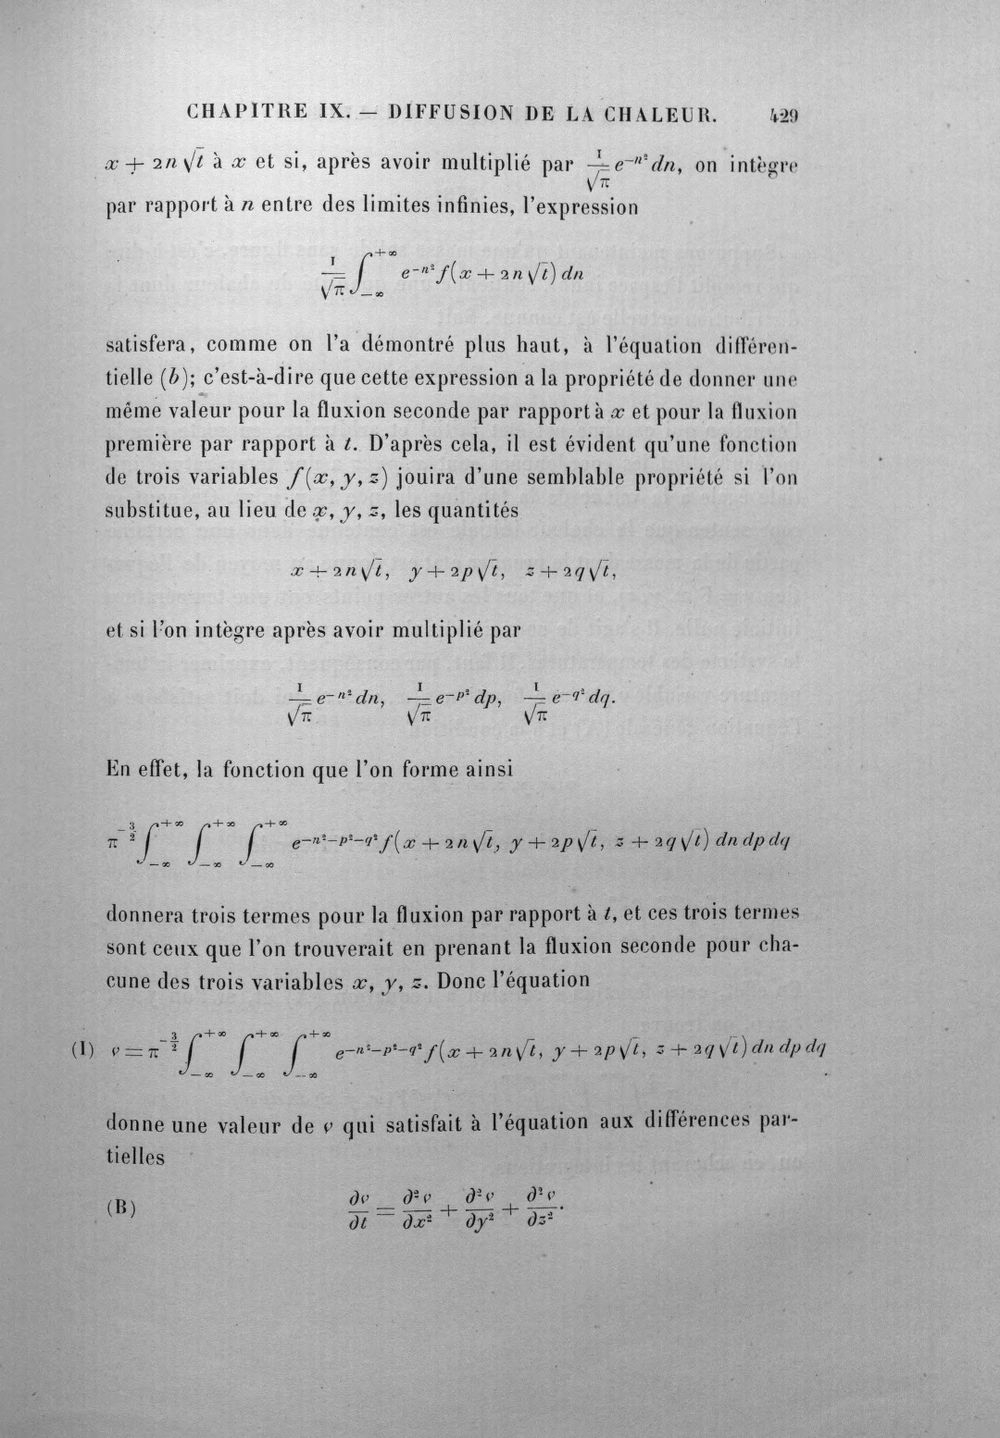 CHAPITRE IX. — DIFFUSION DE LA CHALEUR. 429
x + 2n√t à x et si, après avoir multiplié par 1/√π e^{−n²} dn, on intègre
par rapport à n entre des limites infinies, l'expression
1/√π ∫_{−∞}^{+∞} e^{−n²} f(x + 2n√t) dn
satisfera, comme on l'a démontré plus haut, à l'équation différen-
tielle (b); c'est-à-dire que cette expression a la propriété de donner une
même valeur pour la fluxion seconde par rapport à x et pour la fluxion
première par rapport à t. D'après cela, il est évident qu'une fonction
de trois variables f(x, y, z) jouira d'une semblable propriété si l'on
substitue, au lieu de x, y, z, les quantités
x + 2n√t, y + 2p√t, z + 2q√t,
et si l'on intègre après avoir multiplié par
1/√π e^{−n²} dn, 1/√π e^{−p²} dp, 1/√π e^{−q²} dq.
En effet, la fonction que l'on forme ainsi
π^{−3/2} ∫_{−∞}^{+∞} ∫_{−∞}^{+∞} ∫_{−∞}^{+∞} e^{−n²−p²−q²} f(x + 2n√t, y + 2p√t, z + 2q√t) dn dp dq
donnera trois termes pour la fluxion par rapport à t, et ces trois termes
sont ceux que l'on trouverait en prenant la fluxion seconde pour cha-
cune des trois variables x, y, z. Donc l'équation
(1) v = π^{−3/2} ∫_{−∞}^{+∞} ∫_{−∞}^{+∞} ∫_{−∞}^{+∞} e^{−n²−p²−q²} f(x + 2n√t, y + 2p√t, z + 2q√t) dn dp dq
donne une valeur de v qui satisfait à l'équation aux différences par-
tielles
(B) ∂v/∂t = ∂²v/∂x² + ∂²v/∂y² + ∂²v/∂z².